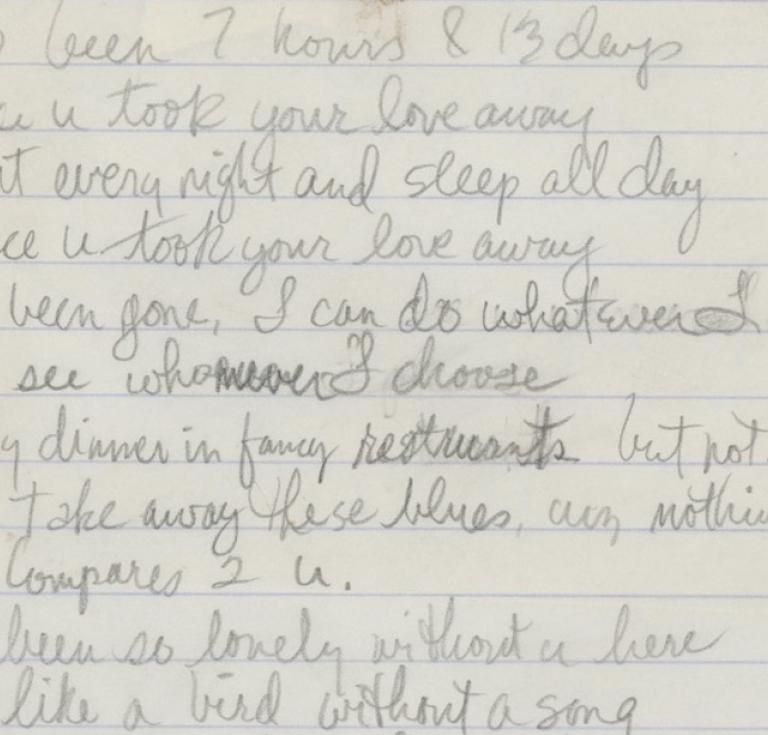 been 7 hours & 13 days
u took your love away
t every night and sleep all day
ce u took your love away
been gone, I can do whatever I
see whomever I choose
y dinner in fancy restruants but not
take away these blues, cuz nothi
Compares 2 U.
been so lonely without u here
like a bird without a song